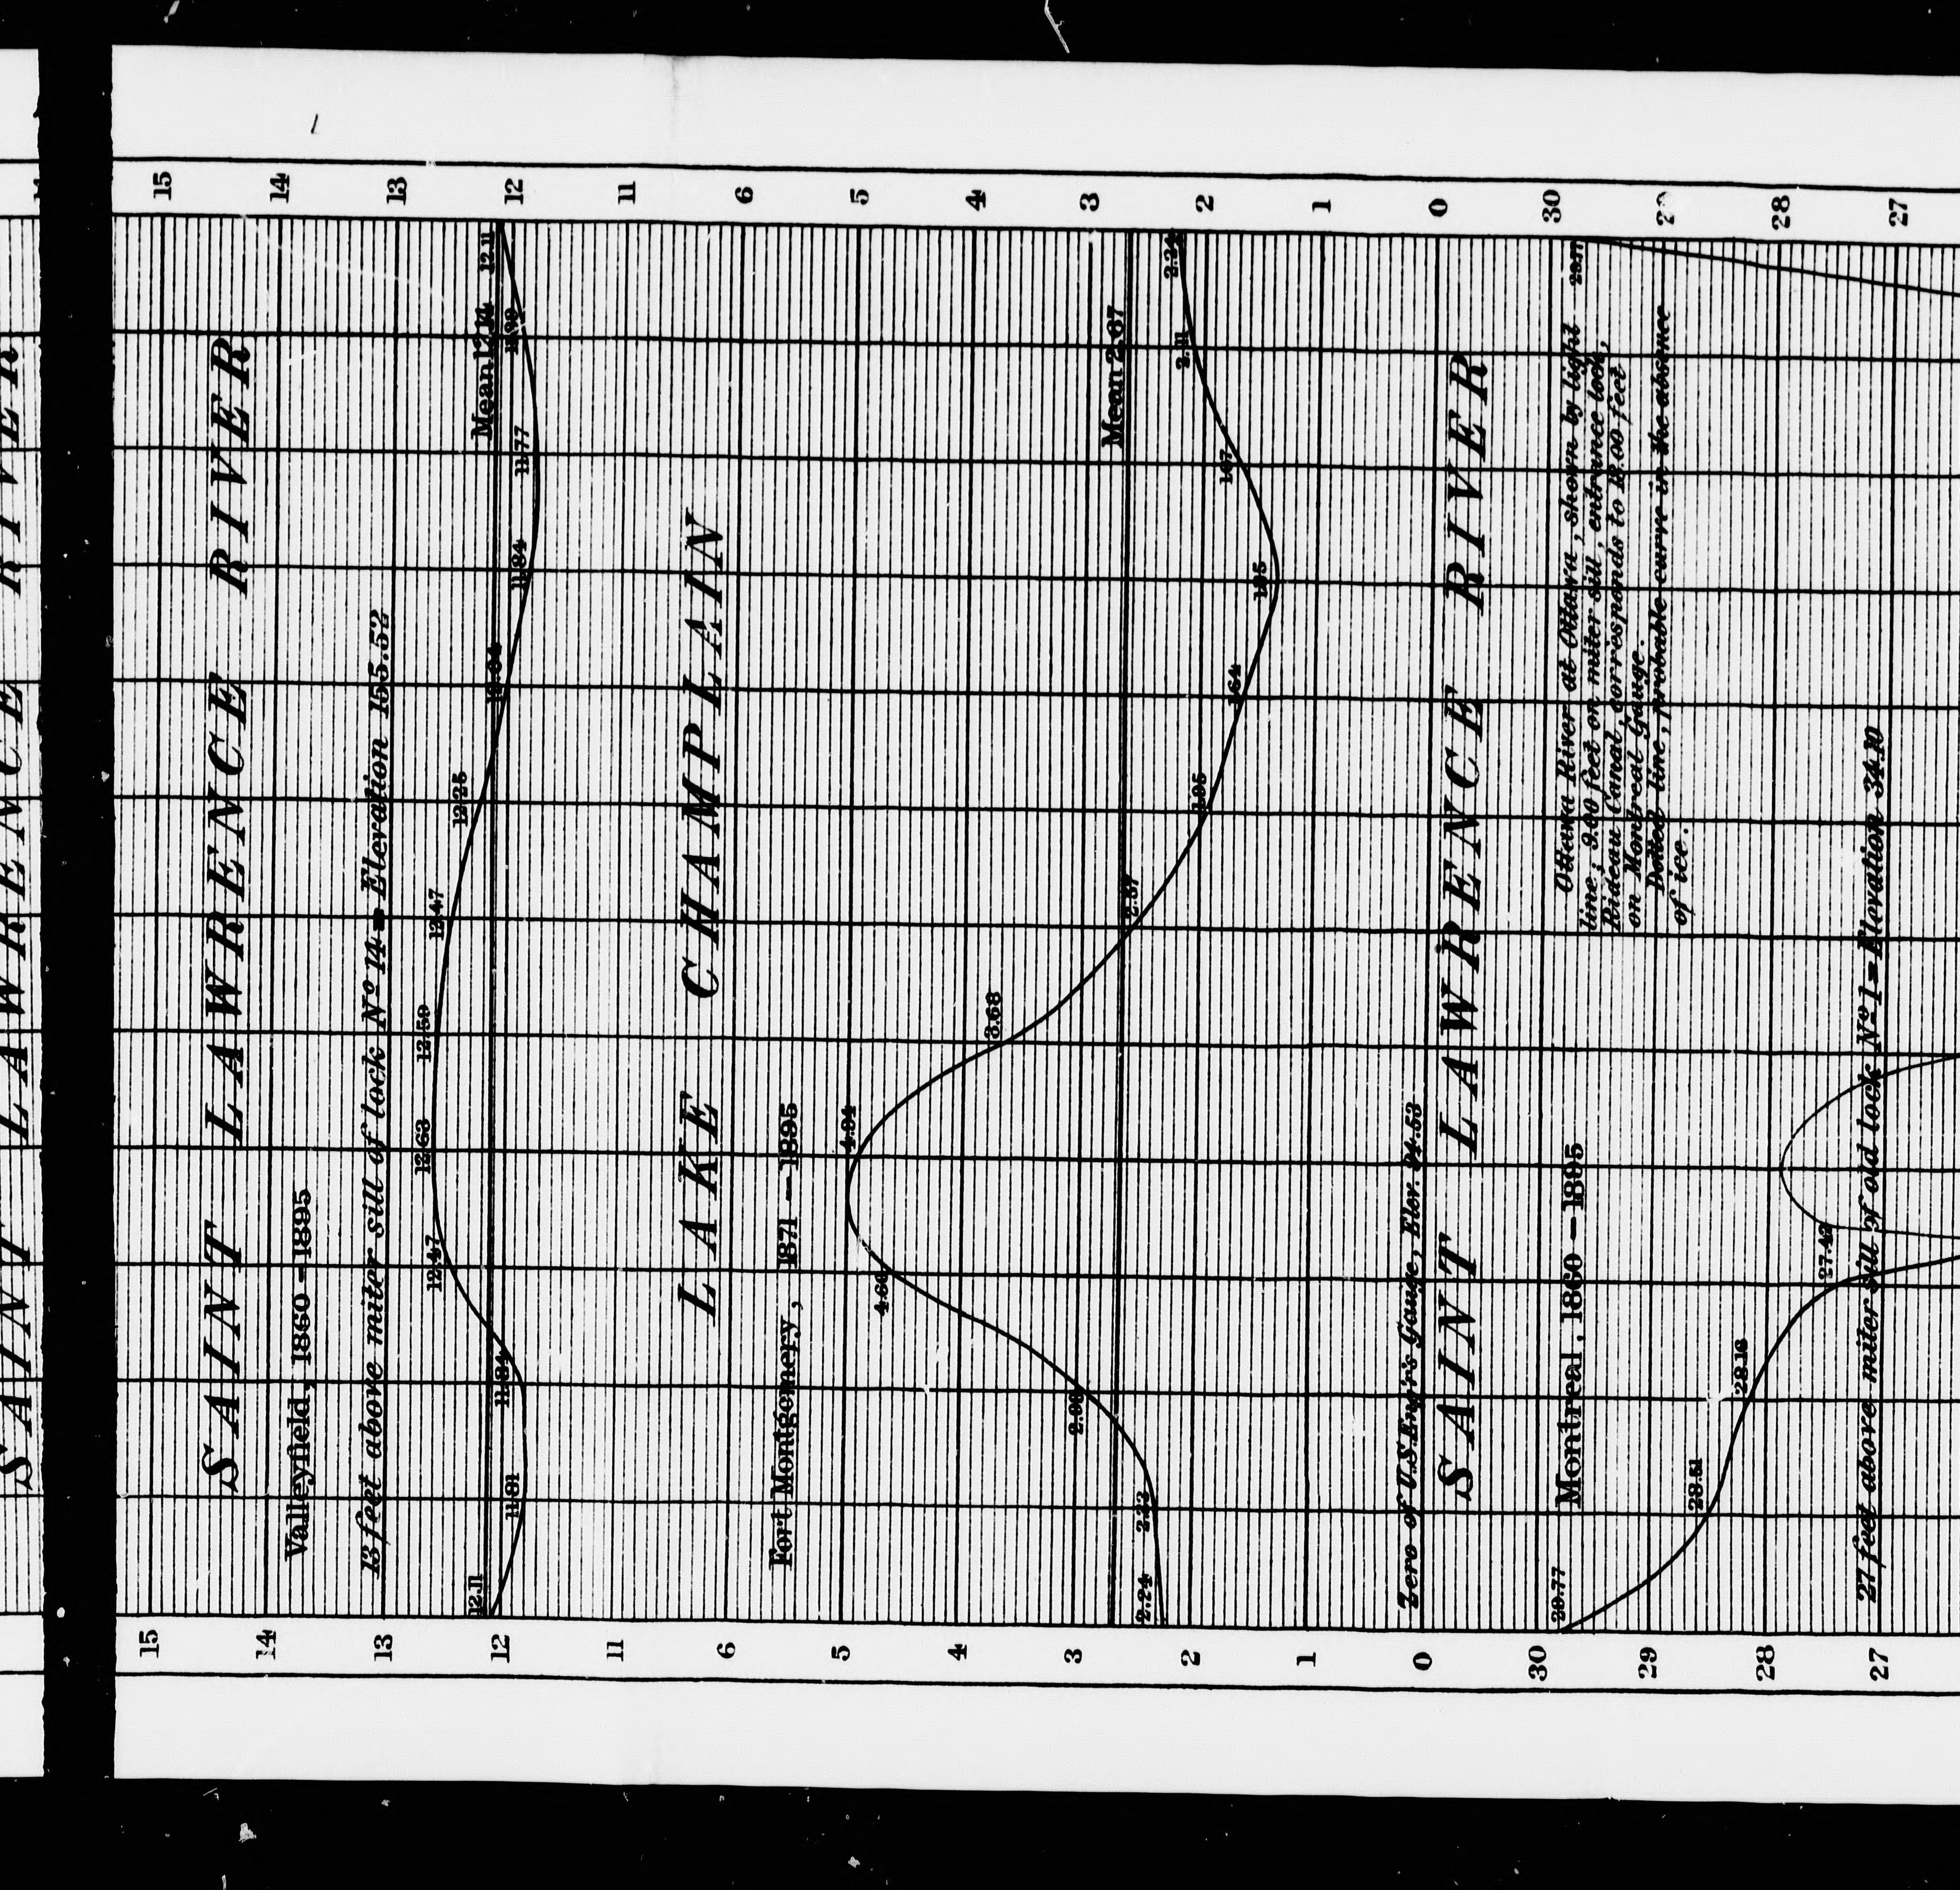 SAINT LAWRENCE RIVER
15
14
13
12
11
6
5
4
3
2
1
0
30
28
27
SAINT LAWRENCE RIVER
Valleyfield, 1860 – 1895
13 feet above miter sill of lock Nº 14 = Elevation 155.52
12.11
11.81
11.84
12.47
12.63
12.59
12.47
12.25
11.84
11.77
12.11
Mean 12.14
LAKE CHAMPLAIN
Fort Montgomery, 1871 – 1895
2.24
2.33
4.60
4.94
3.68
2.57
1.95
1.64
1.67
2.11
2.24
Mean 2.67
Zero of U.S. Eng'r's Gauge, Elev. 94.53
SAINT LAWRENCE RIVER
Montreal, 1860 – 1895
Ottawa River at Ottawa, shown by light
line; 9.00 feet on miter sill, entrance lock,
Rideau Canal, corresponds to feet
on Montreal Gauge.
Dotted line, probable curve in the absence
of ice.
27 feet above miter sill of old lock Nº 1 = Elevation 34.10
29.77
28.51
28.16
27.42
15
14
13
12
11
6
5
4
3
2
1
0
30
29
28
27